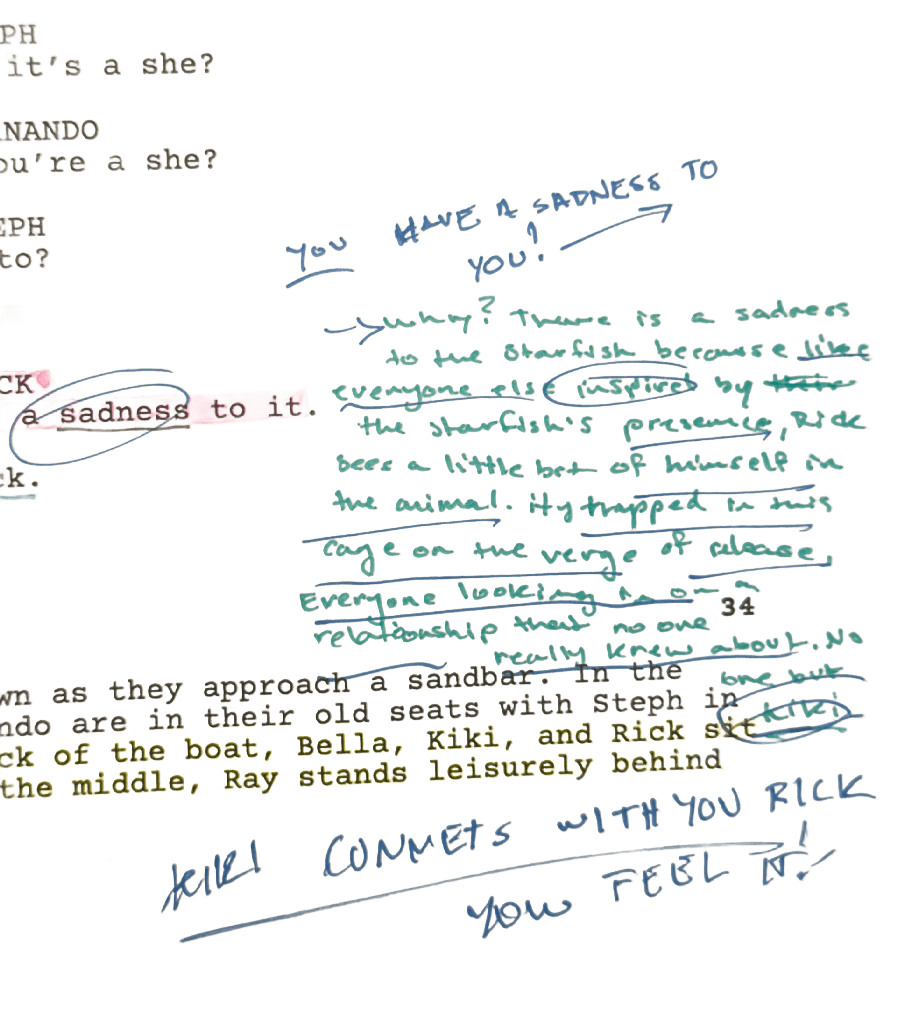 PH
it's a she?
NANDO
ou're a she?
YOU HAVE A SADNESS TO
YOU!
EPH
to?
→ Why? There is a sadness
to the starfish because like
everyone else inspired by
the starfish's presence, Rick
CK
a sadness to it.
sees a little bit of himself in
ck.
the animal. trapped in this
cage on the verge of release,
Everyone looking in on a
34
relationship that no one
really knew about. No
one but
kiki
wn as they approach a sandbar. In the
ndo are in their old seats with Steph in
ck of the boat, Bella, Kiki, and Rick sit
the middle, Ray stands leisurely behind
KIKI CONNECTS WITH YOU RICK
YOU FEEL IT!